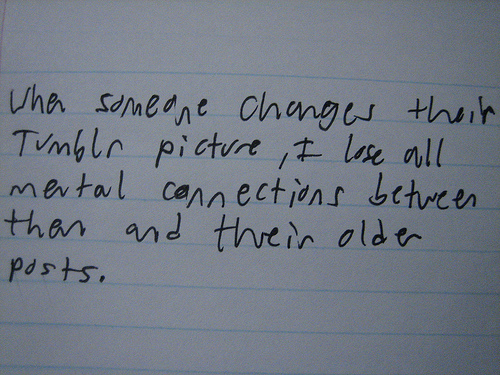 When someone changes their
Tumblr picture, I lose all
mental connections between
them and their older
posts.